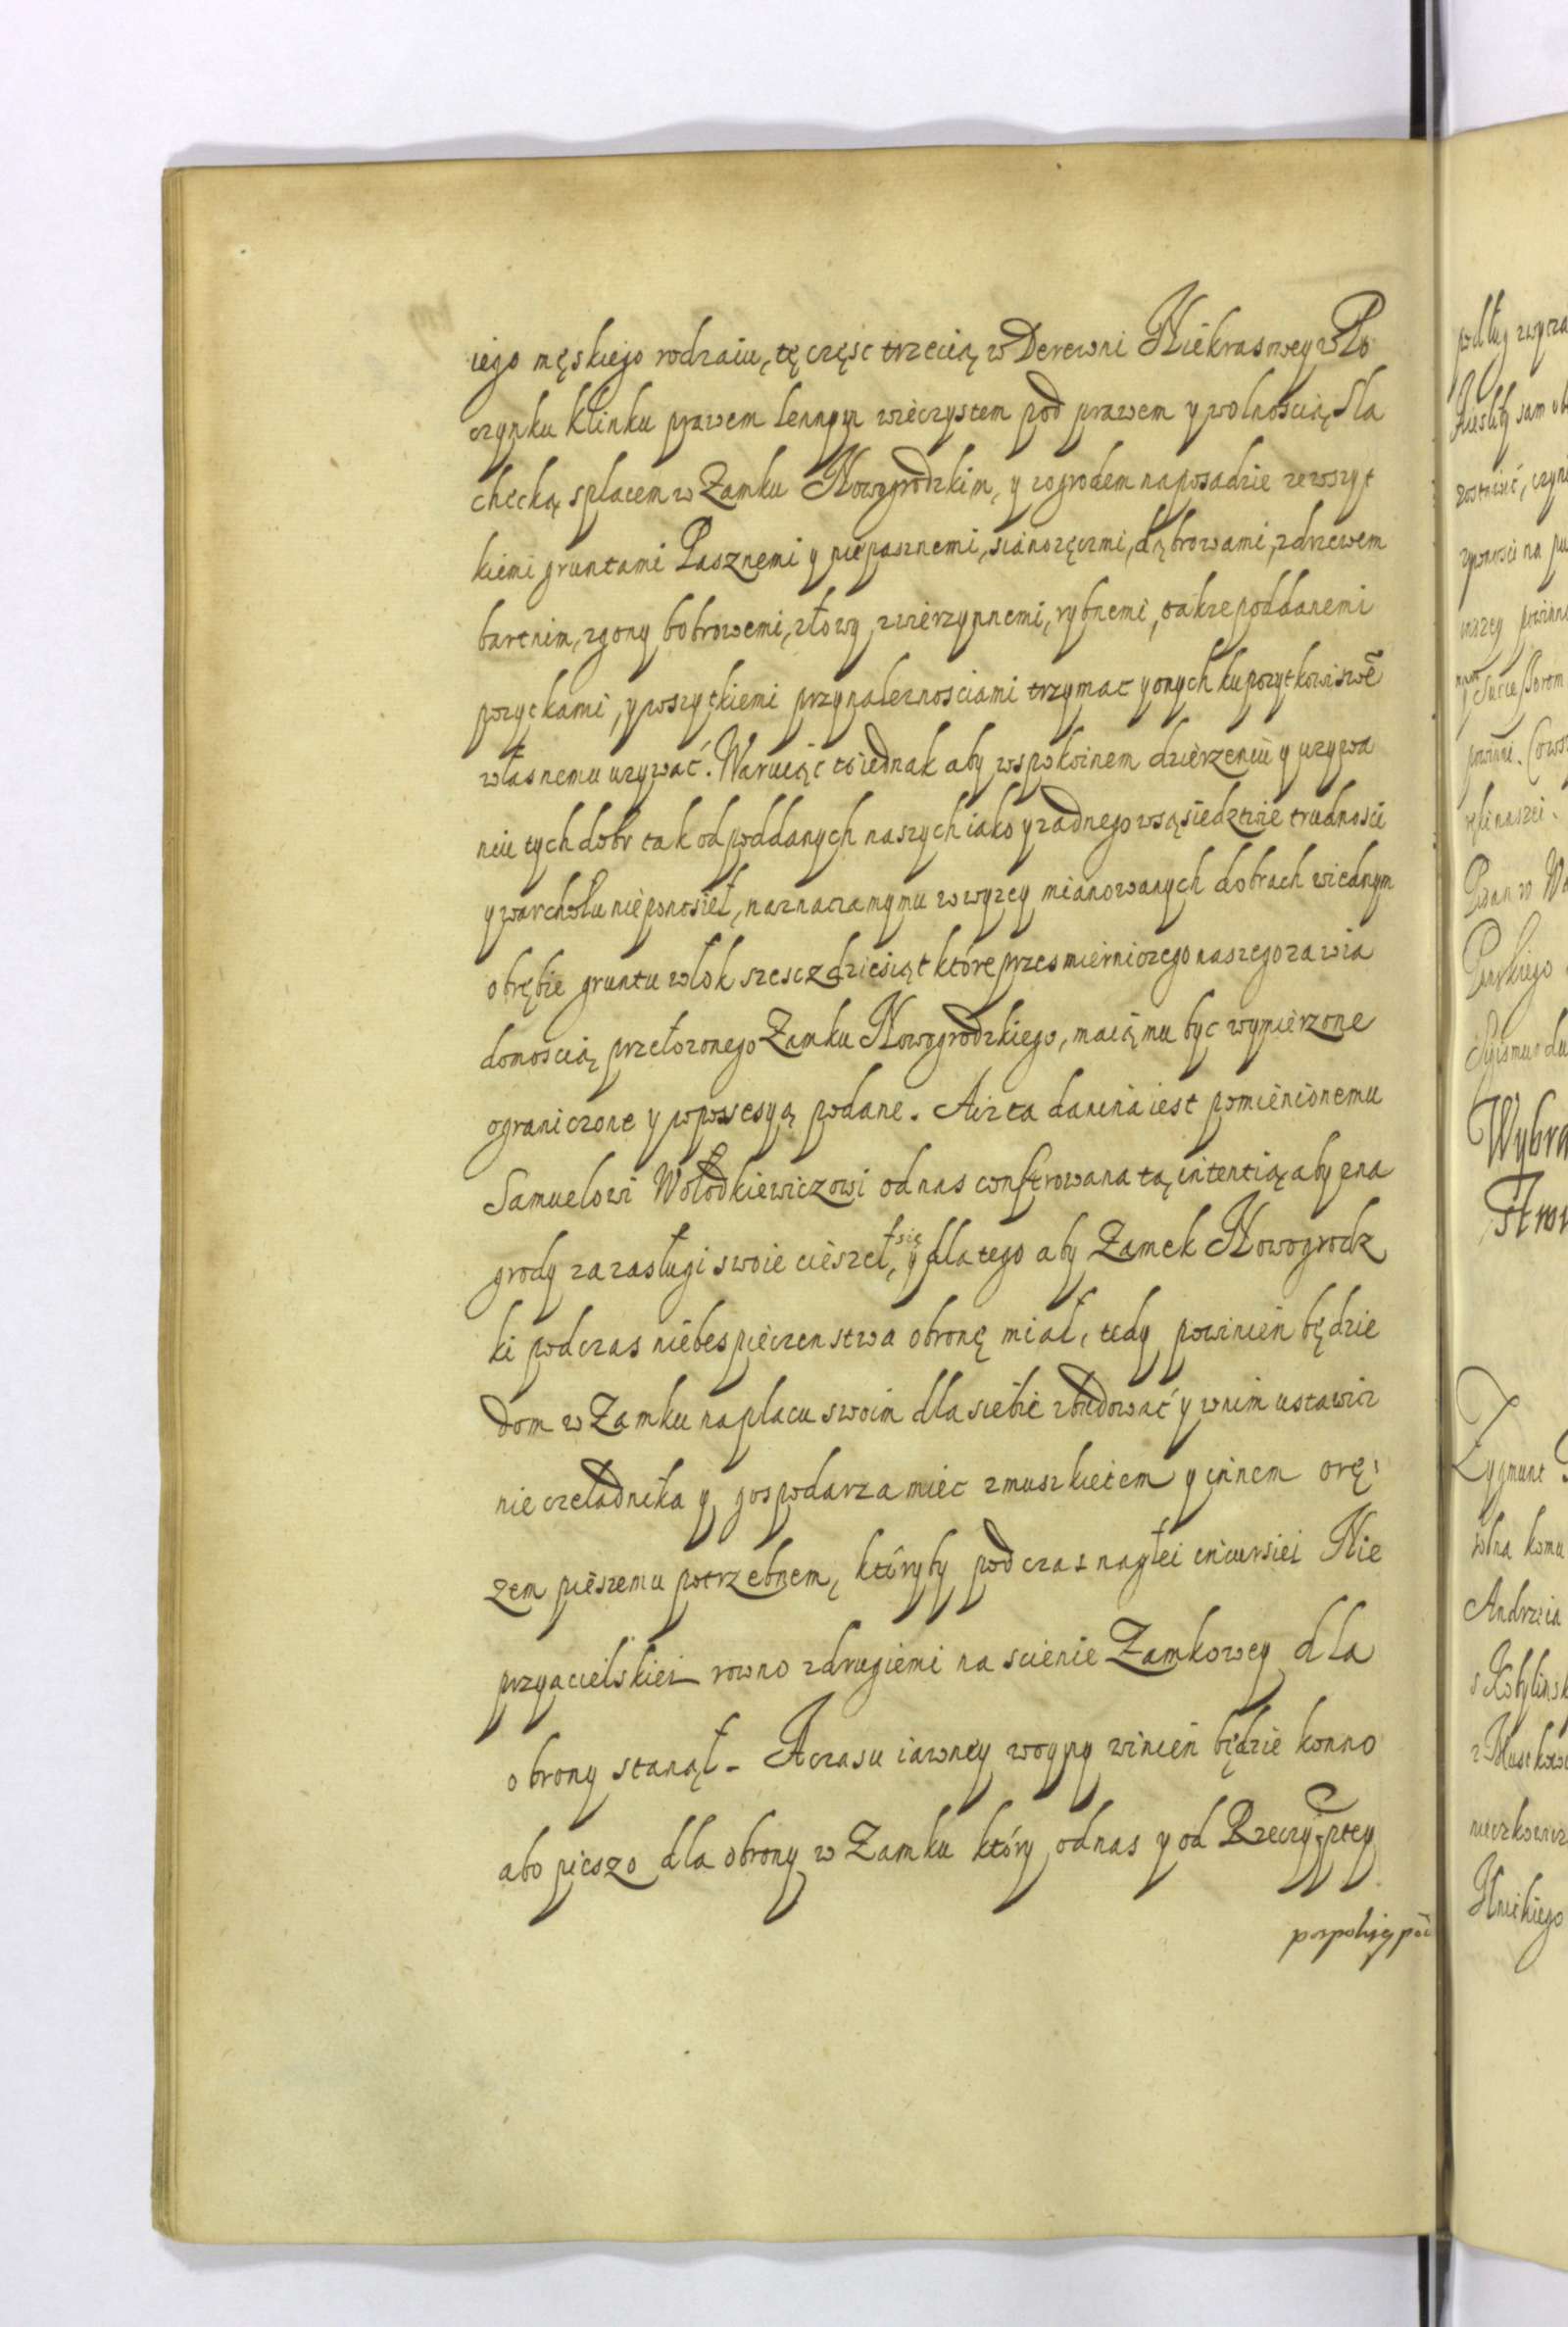 iego męskiego rodzaiu, tę częsc trzecią w Derewni Niekrasowey w Po
czynku Klinku prawem lennym wieczystem pod prawem y wolnoscią Sla
checką splacem w Zamku Nowogrodzkim, y zogrodem na posadzie ze wszyt
kiemi gruntami Pasznemi y niepasznemi, sianożęczmi, dąbrowami, zdrzewem
bartnim, zgony bobrowemi, złowy zwierzynnemi, rybnemi, takze poddanemi
pozytkami, y wszytkiemi przynaleznosciami trzymac y onych ku pozytkowi swē
własnemu uzywać. Waruiąc to iednak aby w spokoinem dzierzeniu y uzywa
niu tych dobr tak od poddanych naszych iako y zadnego w sąsiedztwie trudnosci
y warchołu nie ponosieł, naznaczamy mu w wyzey mianowanych dobrach w iednym
obrębie gruntu włok szesczdziesiąt które przes mierniczego naszego za wia
domoscią przełozonego Zamku Nowogrodzkiego, maią mu byc wymierzone
ograniczone y w possesyą podane. A iz ta danina iest pomienionemu
Samuelowi Wołodkiewiczowi od nas conferowana tą intentią aby z na
grody za zasługi swoie cieszeł się, y dla tego aby Zamek Nowogrodz
ki pod czas niebespieczenstwa obronę miał, tedy powinien będzie
dom w Zamku na placu swoim dla siebie zbudować y w nim ustawicz
nie czeladnika y gospodarza miec z muszkietem y innem orę
zem pieszemu potrzebnem, któryby pod czas nagłei incursiei Nie
przyacielskiei rowno z drugiemi na scienie Zamkowey dla
obrony stanął. A czasu iawney woyny winien będzie konno
abo pieszo dla obrony w Zamku który od nas y od Rzeczyptey